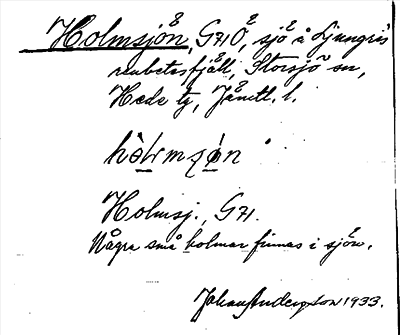 Holmsjön, G71Ö, sjö å Ljungris
renbetesfjäll, Storsjö sn,
Hede tg, Jämtl. l.
Holmsj., G71.
Några små holmar finnas i sjön.
Johan Anderson 1933.